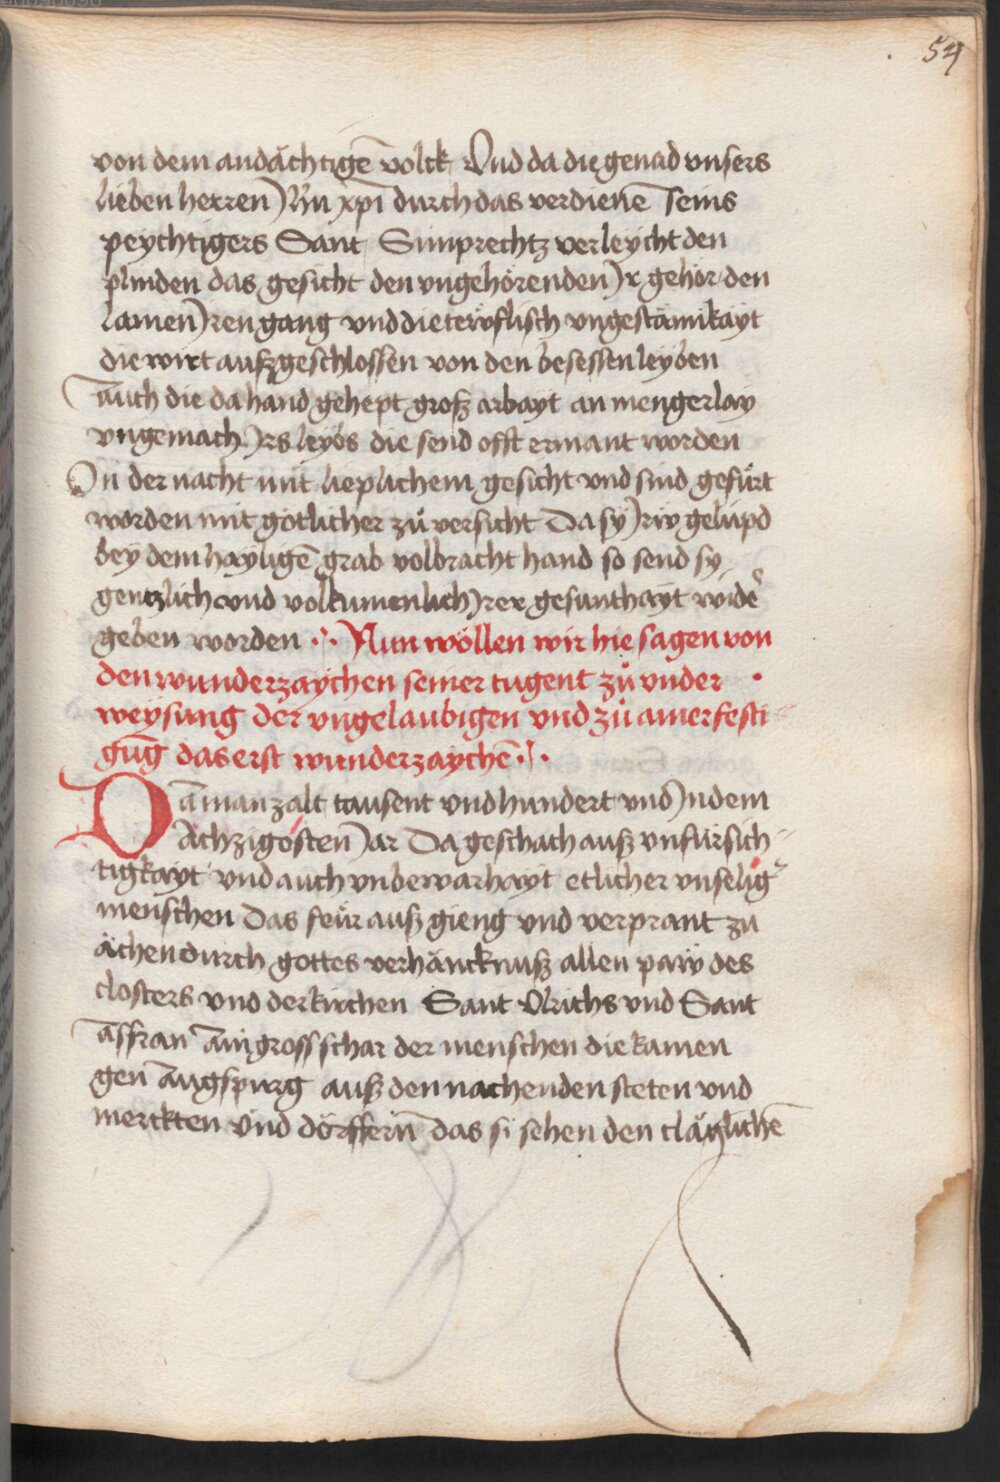 54
von dem andächtigē volck Vnd da die genad vnsers
lieben herren Jhū xpī durch das verdienē seins
peychtigers Sant Simprechtz verleycht den
plinden das gesicht den vngehörenden Jr gehör den
lamen Jren gang vnd die teẅflisch vngestämikäyt
die wirt außgeschlossen von den besessen leyben
auch die da hand gehept groß arbayt an mengerlay
vngemach Jrs leybs die send offt ermant worden
Jn der nacht mit lieplichem gesicht vnd sind gefürt
worden mit götlicher zů versicht Da sy Jriv gelüpd
bey dem hayligē grab volbracht hand so send sy
gentzlich vnd volkumenlich Jrer gesunthayt wider
geben worden Nun wöllen wir hie sagen von
den wunderzaychen seiner tugent zů vnder
weysung der vngelaubigen vnd zů ainer festi
gūg das erst wunderzaychē
Da man zalt tausent vnd hundert vnd Jn dem
Achzigosten Jar Da geschach auß vnfürsich
tigkayt vnd auch vnbewarhayt etlicher vnselig
menschen Das feür auß gieng vnd verprant zu
äschen durch gottes verhäncknuß allen paw des
closters vnd der kirchen Sant Vlrichs vnd Sant
affran Ain gross schar der menschen die kamen
gen Augspurg auß den nachenden steten vnd
merckten vnd dörffern das si sehen den cläglichē